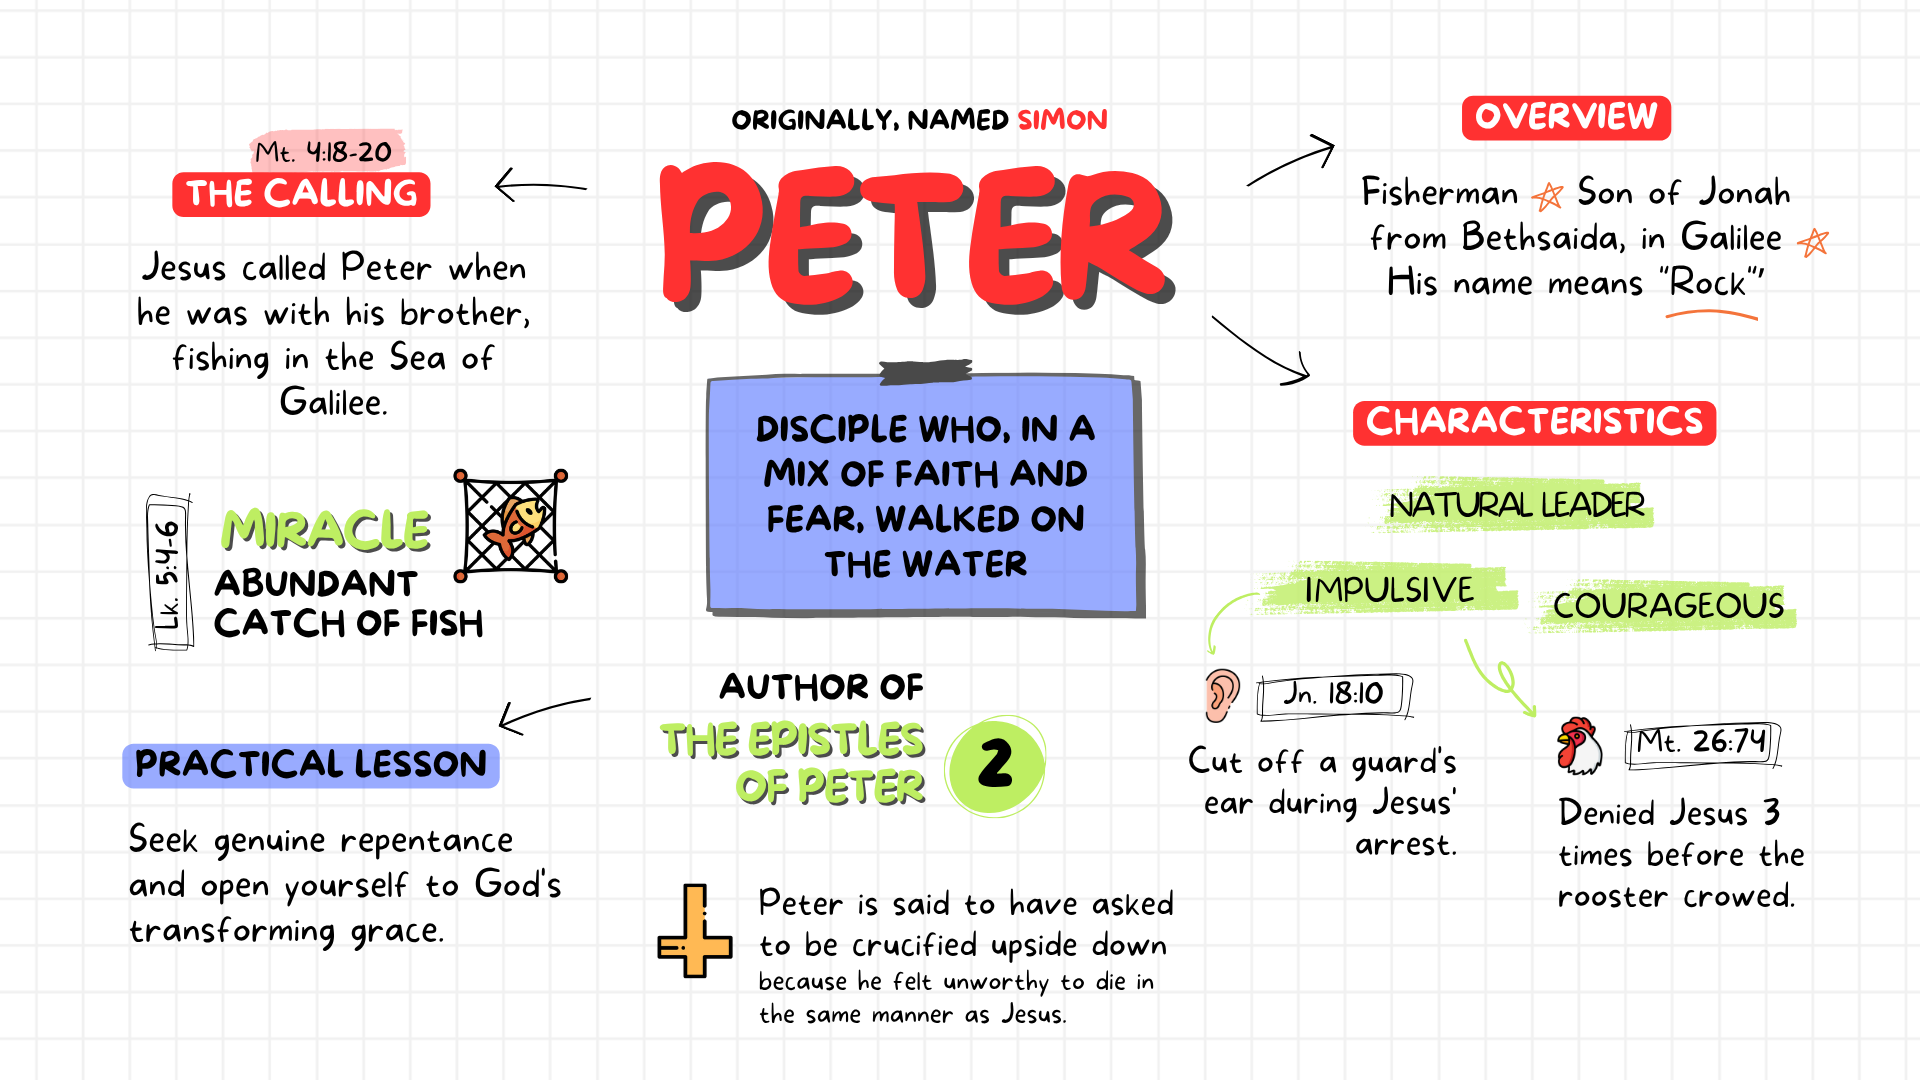 ORIGINALLY, NAMED SIMON
PETER
DISCIPLE WHO, IN A
MIX OF FAITH AND
FEAR, WALKED ON
THE WATER
AUTHOR OF
THE EPISTLES
OF PETER
2
Peter is said to have asked
to be crucified upside down
because he felt unworthy to die in
the same manner as Jesus.
Mt. 4:18-20
THE CALLING
Jesus called Peter when
he was with his brother,
fishing in the Sea of
Galilee.
Lk. 5:4-6
MIRACLE
ABUNDANT
CATCH OF FISH
PRACTICAL LESSON
Seek genuine repentance
and open yourself to God's
transforming grace.
OVERVIEW
Fisherman Son of Jonah
from Bethsaida, in Galilee
His name means "Rock"'
CHARACTERISTICS
NATURAL LEADER
IMPULSIVE
COURAGEOUS
Jn. 18:10
Cut off a guard's
ear during Jesus'
arrest.
Mt. 26:74
Denied Jesus 3
times before the
rooster crowed.